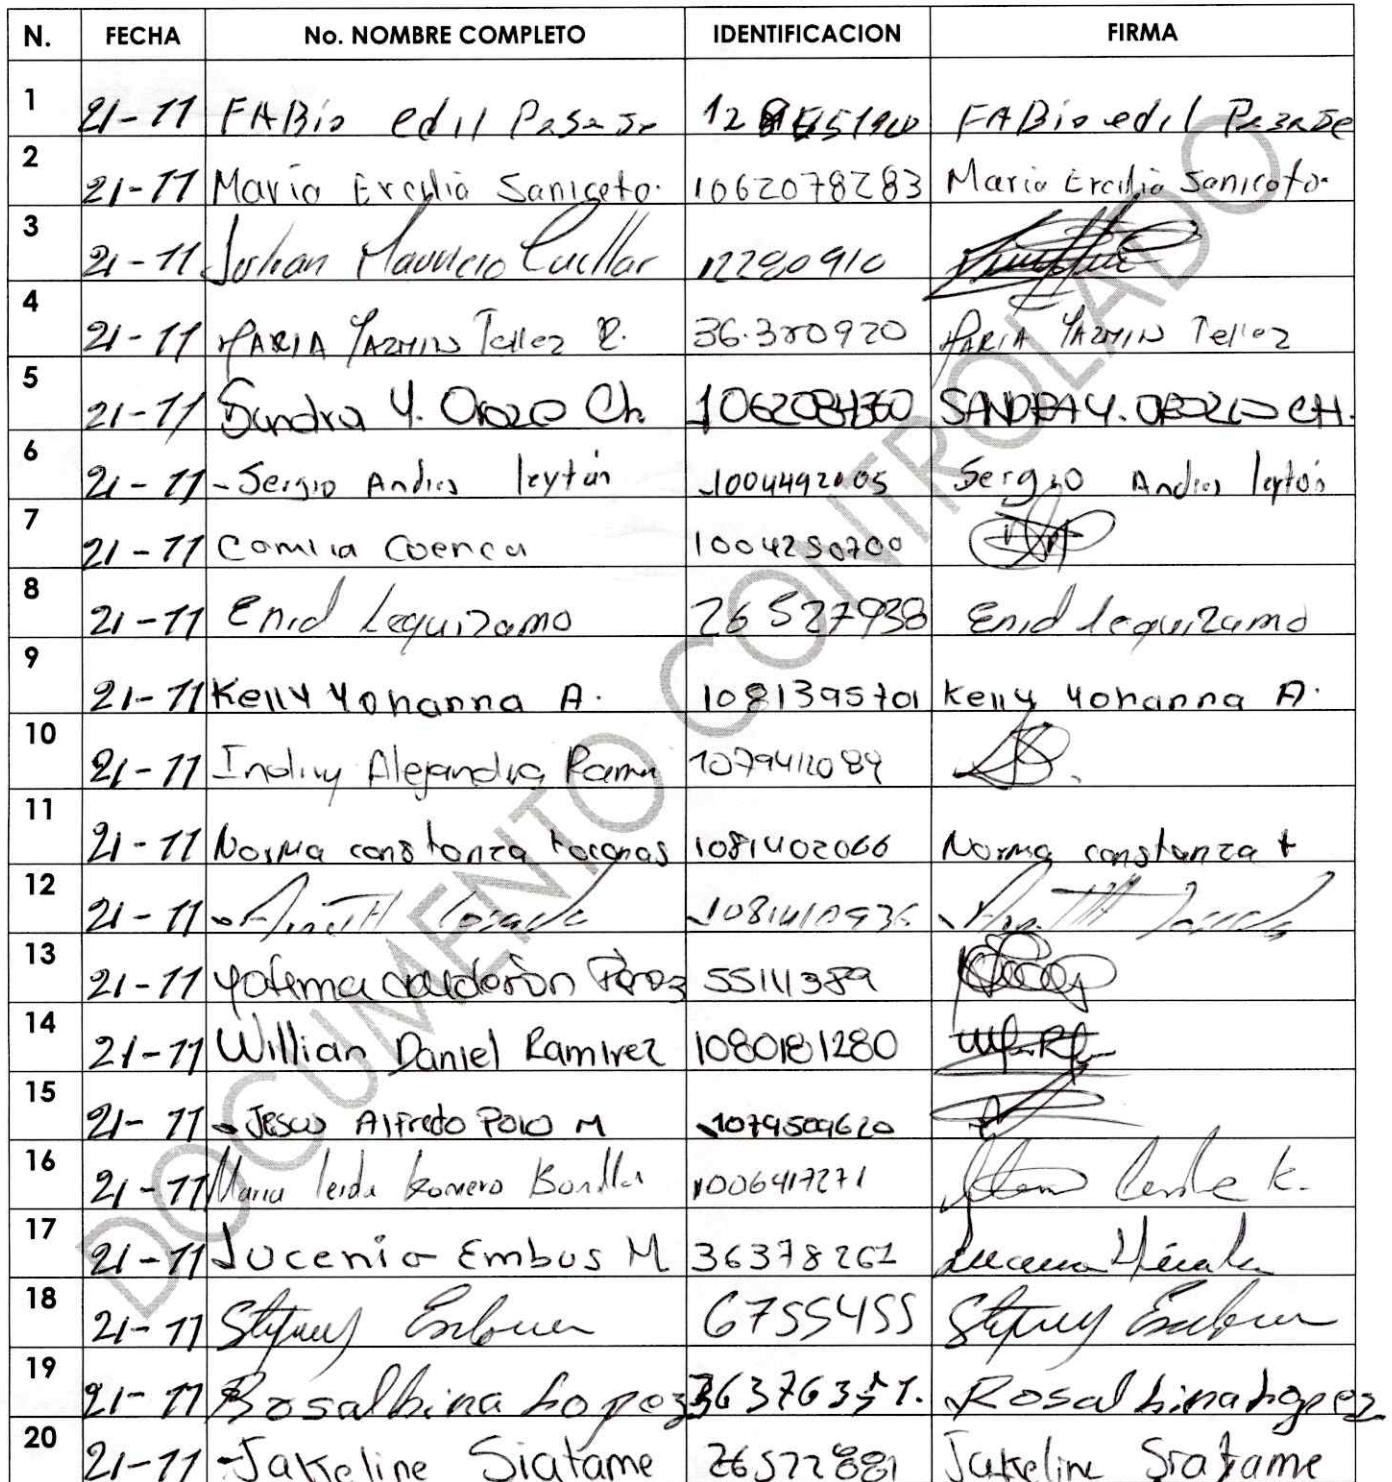 N. FECHA No. NOMBRE COMPLETO IDENTIFICACION FIRMA
1 21-11 FABio edil FABio edil
2 21-11 Maria Ercilia Saniceto. 1062078283 Maria Ercilia Sanicoto.
3 21-11 Johan Mauricio Cuellar 12280910
4 21-11 MARIA YAZMIN Tellez R. 36.380920 MARIA YAZMIN Tellez
5 21-11 Sandra Y. Orozco Ch. 1062084360 SANDRA Y. OROZCO CH.
6 21-11 -Sergio Andres leyton 1004492005 Sergio Andres leyton
7 21-11 Camila Cuenca 1004250700
8 21-11 Enid Leguizamo 26527938 Enid leguizamo
9 21-11 Kelly Yohanna A. 1081395701 Kelly Yohanna A.
10 21-11 Alejandra 1079411089
11 21-11 Norma constanza 1081402066 Norma constanza t
12 21-11
13 21-11 calderón Pérez 55111389
14 21-11 Willian Daniel Ramirez 1080181280
15 21-11 Jesus Alfredo Polo M 1079509620
16 21-11 Maria leida Romero Bonilla 1006417271
17 21-11 Lucenia Embus M 36378261
18 21-11 6755455
19 21-11 Rosalbina Lopez Rosalbina Lopez
20 21-11 -Jakeline Siatame 26522881 Jakeline Siatame
DOCUMENTO CONTROLADO